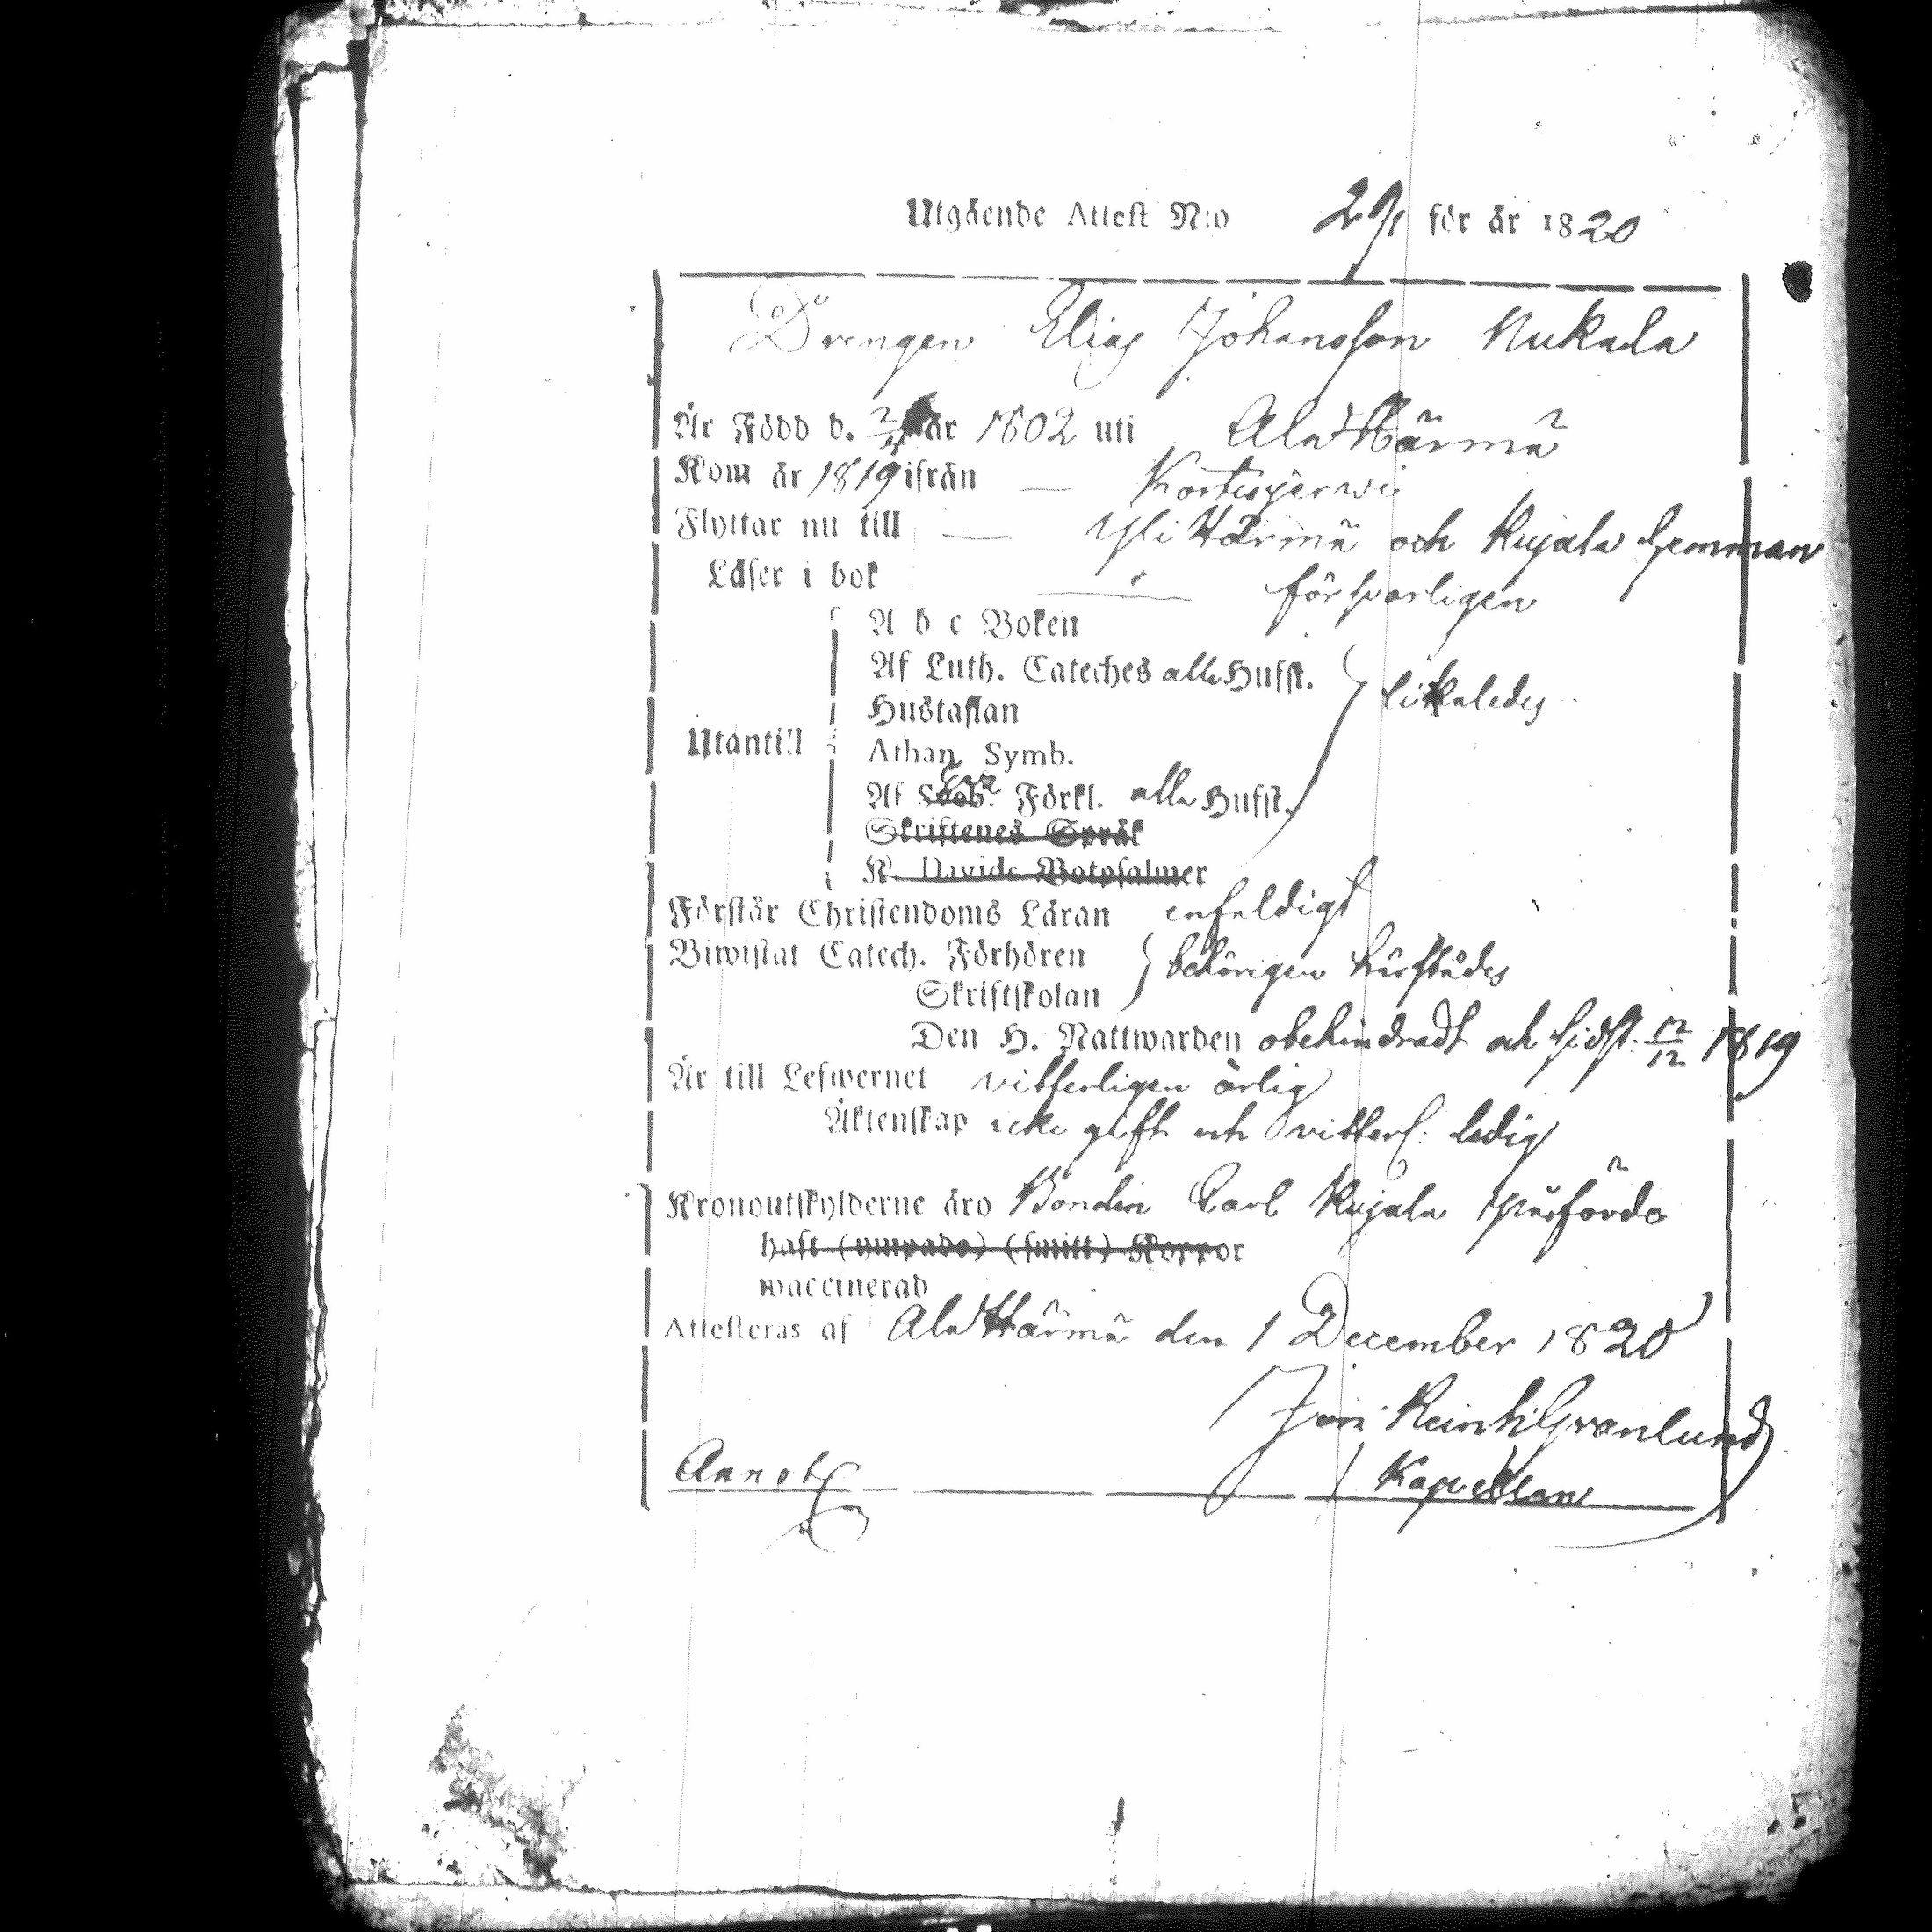 Utgående Attest N:o 29 för år 1820
Drengen Elias Johansson Nukala
Är Född d. 2/4 år 1802 uti Ala Härmä
Kom år 1819 ifrån — Kortesjerwi
Flyttar nu till — Yli Härmä och Kujala hemman
Läser i bok — försvarligen
Utantill
A b c Boken
Af Luth. Cateches alla Hufst.
Hustaflan
likaledes
Athan. Symb.
Af Förkl. alla Hufst.
Skriftenes Språk
K. Davids Botpsalmer
Förstår Christendoms Läran enfaldigt
Biwistat Catech. Förhören
Skriftskolan
behörigen härstädes
Den H. Nattwarden obehindradt och sidst. 12/12 1819
Är till Lefwernet vitterligen ärlig
Äktenskap icke gift och vitterl: ledig
Kronoutskylderne äro Bonden Carl Kujala påförde
haft (ympade) (smitt) Koppor
waccinerad
Attesteras af Ala Härmä den 1 December 1820
Reinh: Granlund
Kapellan
Annot